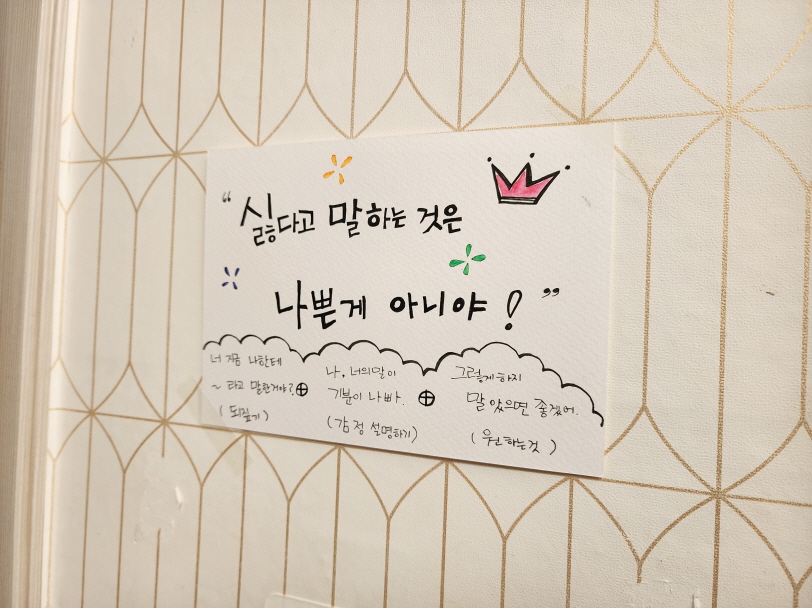 “싫다고 말하는 것은
나쁜게 아니야! ”
너 지금 나한테
~ 라고 말한거야?
(되짚기)
⊕
나, 너의 말이
기분이 나빠.
(감정 설명하기)
⊕
그렇게 하지
말았으면 좋겠어.
(원하는것)